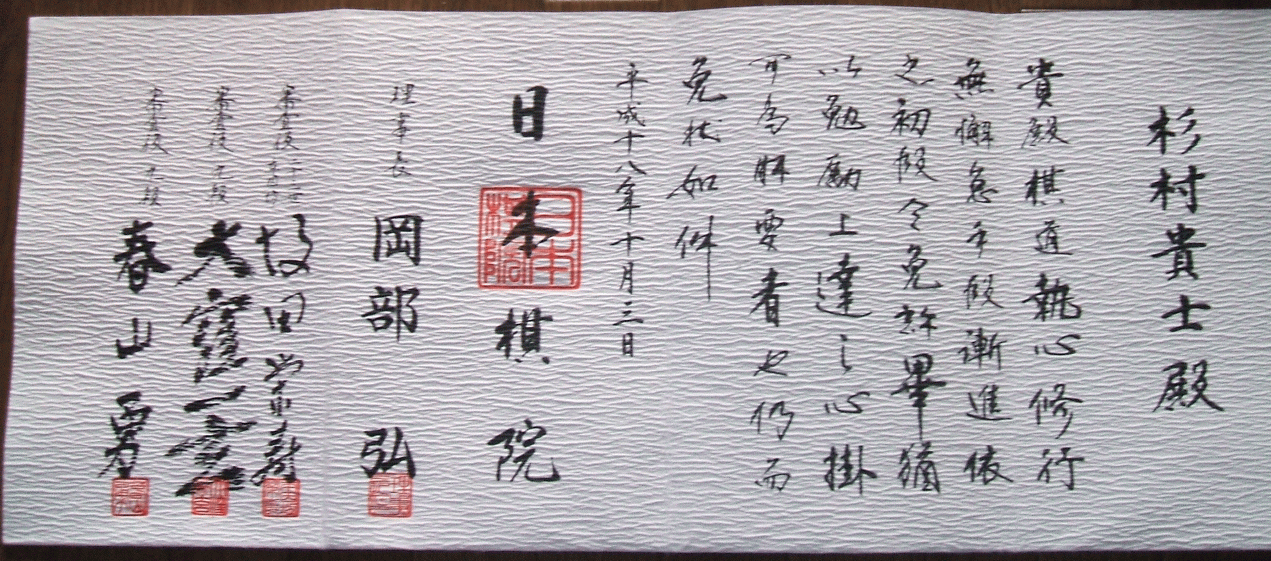 杉村貴士殿
貴殿棋道執心修行
無懈怠手段漸進依
之初段令免許畢猶
以勉励上達之心掛
可為肝要者也仍而
免状如件
平成十八年十月三日
日本棋院
理事長 岡部 弘
審査役 二十三世本因坊 坂田栄寿
審査役 九段 大窪一玄
審査役 九段 春山勇